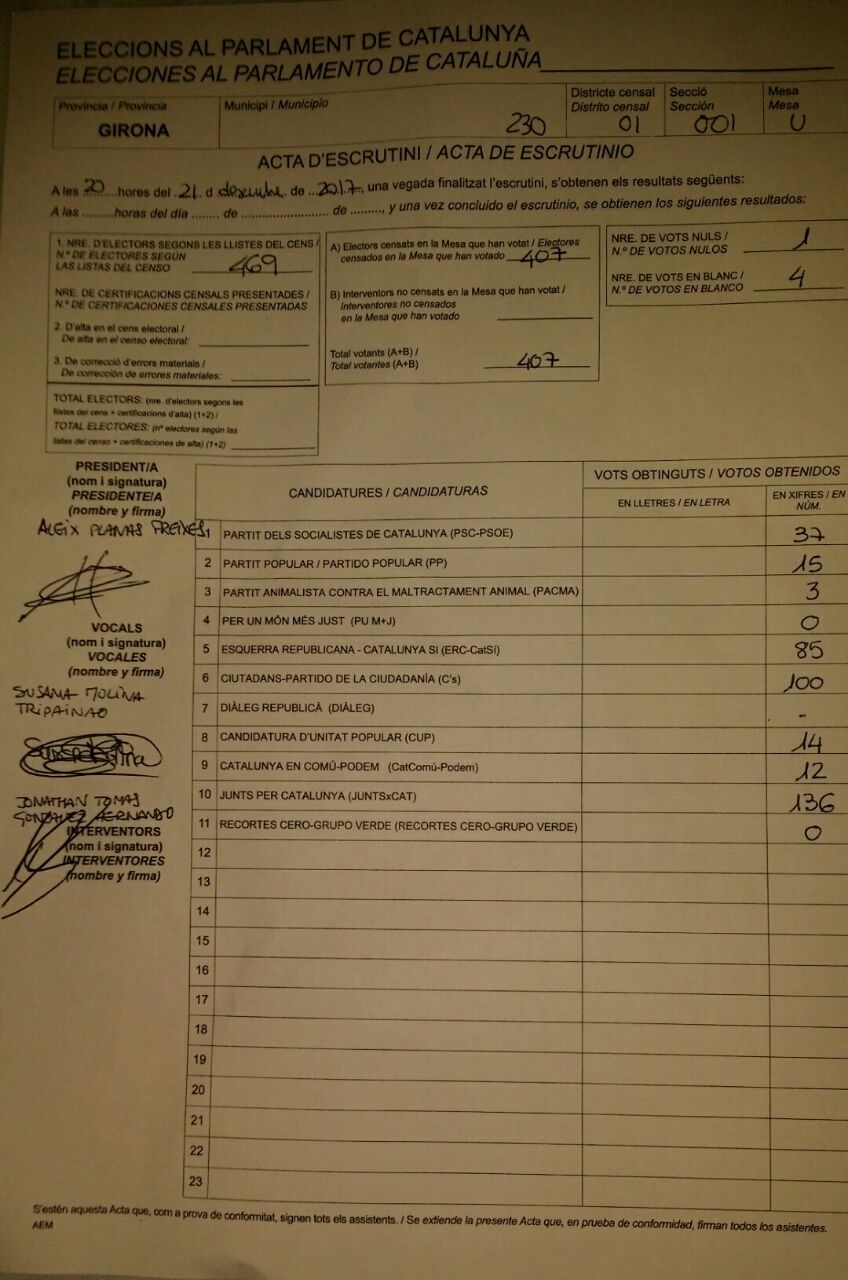 ELECCIONS AL PARLAMENT DE CATALUNYA
ELECCIONES AL PARLAMENTO DE CATALUÑA
Província / Provincia
GIRONA
Municipi / Municipio
230
Districte censal
Distrito censal
01
Secció
Sección
001
Mesa
Mesa
U
ACTA D'ESCRUTINI / ACTA DE ESCRUTINIO
A les 20 hores del 21 d desembre de 2017, una vegada finalitzat l'escrutini, s'obtenen els resultats següents:
A las ........ horas del día ....... de ......................... de ........., y una vez concluido el escrutinio, se obtienen los siguientes resultados:
1. NRE. D'ELECTORS SEGONS LES LLISTES DEL CENS /
N.º DE ELECTORES SEGÚN
LAS LISTAS DEL CENSO 469
NRE. DE CERTIFICACIONS CENSALS PRESENTADES /
N.º DE CERTIFICACIONES CENSALES PRESENTADAS
2. D'alta en el cens electoral /
De alta en el censo electoral:
3. De correcció d'errors materials /
De corrección de errores materiales:
TOTAL ELECTORS: (nre. d'electors segons les
llistes del cens + certificacions d'alta) (1+2) /
TOTAL ELECTORES: (nº electores según las
listas del censo + certificaciones de alta) (1+2)
A) Electors censats en la Mesa que han votat / Electores
censados en la Mesa que han votado 407
B) Interventors no censats en la Mesa que han votat /
Interventores no censados
en la Mesa que han votado
Total votants (A+B) /
Total votantes (A+B) 407
NRE. DE VOTS NULS /
N.º DE VOTOS NULOS 1
NRE. DE VOTS EN BLANC /
N.º DE VOTOS EN BLANCO 4
PRESIDENT/A
(nom i signatura)
PRESIDENTE/A
(nombre y firma)
ALEIX PLANAS FREIXES
VOCALS
(nom i signatura)
VOCALES
(nombre y firma)
SUSANA MOLINA
TRIPAINAO
JONATHAN TOMAS
GONZALEZ HERNANDO
INTERVENTORS
(nom i signatura)
INTERVENTORES
(nombre y firma)
CANDIDATURES / CANDIDATURAS
VOTS OBTINGUTS / VOTOS OBTENIDOS
EN LLETRES / EN LETRA
EN XIFRES / EN
NÚM.
1 PARTIT DELS SOCIALISTES DE CATALUNYA (PSC-PSOE) 37
2 PARTIT POPULAR / PARTIDO POPULAR (PP) 15
3 PARTIT ANIMALISTA CONTRA EL MALTRACTAMENT ANIMAL (PACMA) 3
4 PER UN MÓN MÉS JUST (PU M+J) 0
5 ESQUERRA REPUBLICANA - CATALUNYA SÍ (ERC-CatSí) 85
6 CIUTADANS-PARTIDO DE LA CIUDADANÍA (C's) 100
7 DIÀLEG REPUBLICÀ (DIÀLEG) -
8 CANDIDATURA D'UNITAT POPULAR (CUP) 14
9 CATALUNYA EN COMÚ-PODEM (CatComú-Podem) 12
10 JUNTS PER CATALUNYA (JUNTSxCAT) 136
11 RECORTES CERO-GRUPO VERDE (RECORTES CERO-GRUPO VERDE) 0
12
13
14
15
16
17
18
19
20
21
22
23
S'estén aquesta Acta que, com a prova de conformitat, signen tots els assistents. / Se extiende la presente Acta que, en prueba de conformidad, firman todos los asistentes.
AEM